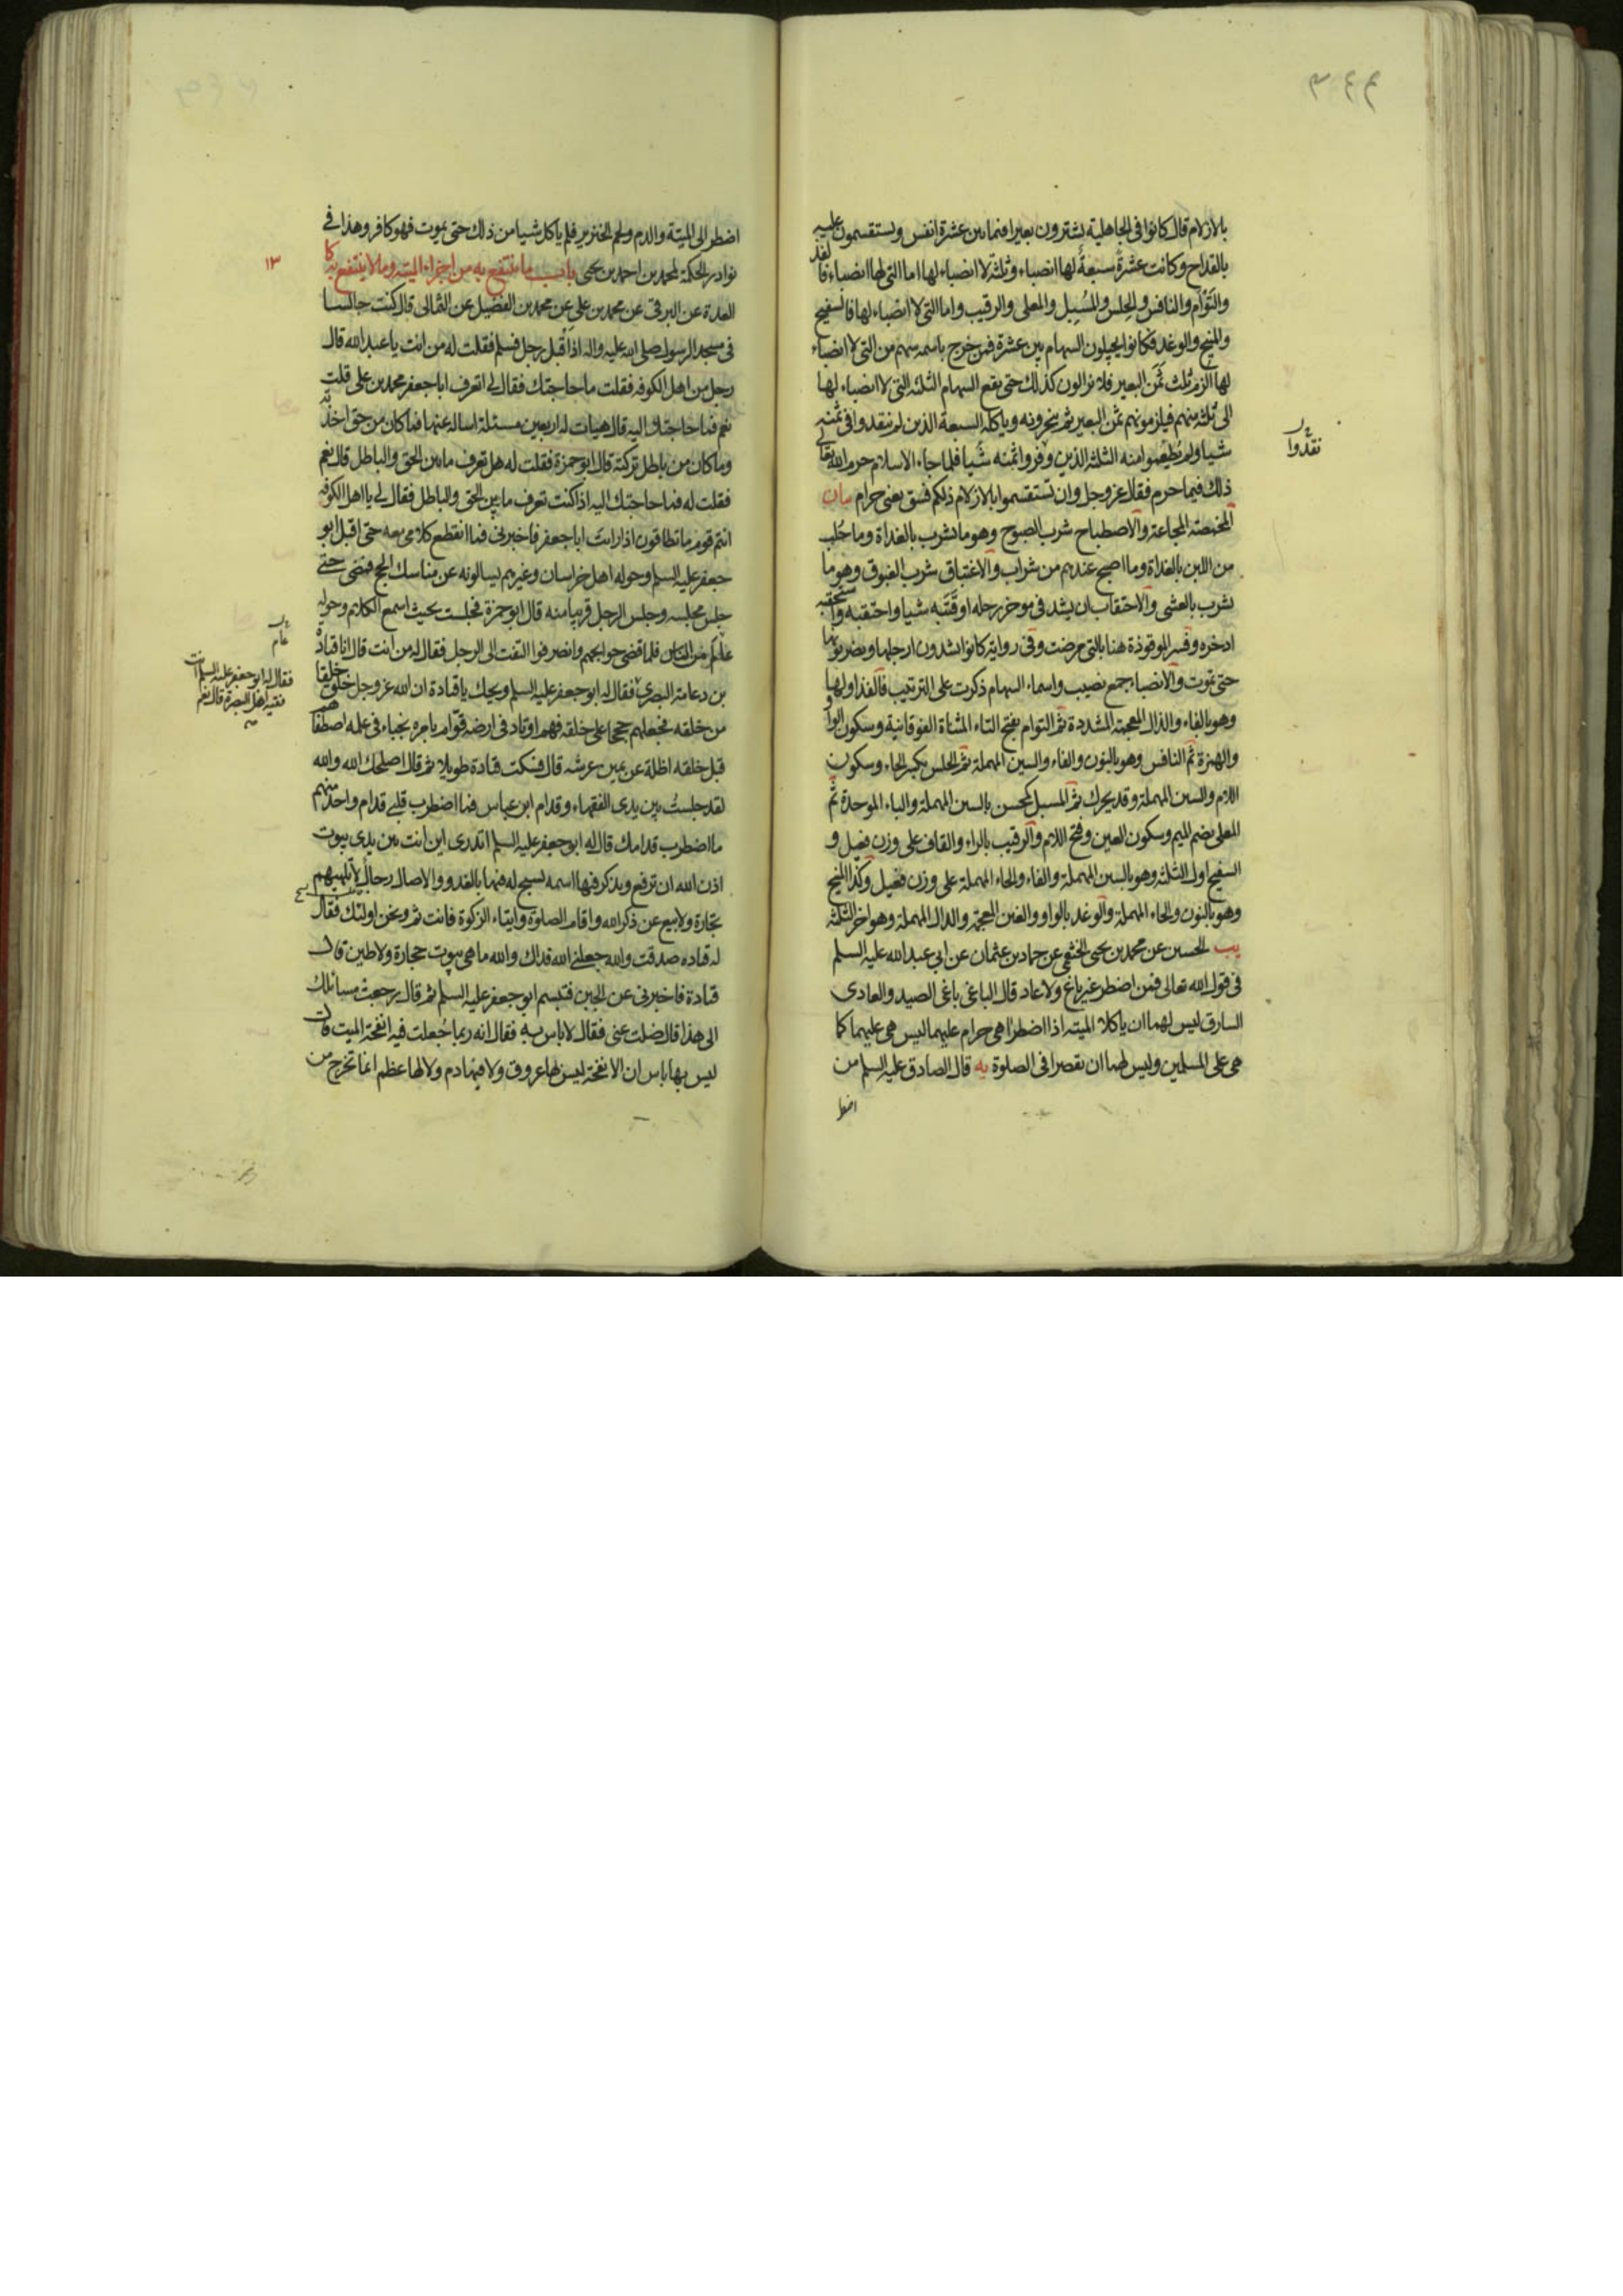 ٣٤٣
بالازلام قال كانوا فى الجاهلية يشترون بعيرا فيما بين عشرة انفس ويستقسمون عليه
بالقداح وكانت عشرة سبعة لها انصباء وثلثة لا انصباء لها اما التى لها انصباء فالفذ
والتوأم والنافس والحلس والمسبل والمعلى والرقيب واما التى لا انصباء لها فالسفيح
والمنيح والوغد فكانوا يجيلون السهام بين عشرة فمن خرج باسمه سهم من التى لا انصباء
لها الزم ثلث ثمن البعير فلا يزالون كذلك حتى يقع السهام الثلثة التى لا انصباء لها
الى ثلثة منهم فيلزمونهم ثمن البعير ثم ينحرونه وياكله السبعة الذين لم ينقدوا فى ثمنه
نقدوا
شيا ولم يطعموا منه الثلثة الذين وفروا ثمنه شيا فلما جاء الاسلام حرم الله تعالى
ذلك فيما حرم فقال عز وجل وان تستقسموا بالازلام ذلكم فسق يعنى حرام بيان
المخمصة المجاعة والاصطباح شرب الصبوح وهو ما يشرب بالغداة وما حلب
من اللبن بالغداة وما اصبح عندهم من شراب والاغتباق شرب الغبوق وهو ما
يشرب بالعشى والاحتقاب ان يشد فى موخر رحله او قتبه شيا واحتقبه واستحقبه
ادخره وفسر الموقوذة هنا بالتى مرضت وفى رواية كانوا يشدون ارجلها ويضربونها
حتى تموت والانصباء جمع نصيب واسماء السهام ذكرت على الترتيب فالفذ اولها
وهو بالفاء والذال المعجمة المشددة ثم التوام بفتح التاء المثناة الفوقانية وسكون الواو
والهمزة ثم النافس وهو بالنون والفاء والسين المهملة ثم الحلس بكسر الحاء وسكون
اللام والسين المهملة وقد يحرك ثم المسبل كمحسن بالسين المهملة والباء الموحدة ثم
المعلى بضم الميم وسكون العين وفتح اللام والرقيب بالراء والقاف على وزن فعيل و
السفيح اول الثلثة وهو بالسين المهملة والفاء والحاء المهملة على وزن فعيل وكذا المنيح
وهو بالنون والحاء المهملة والوغد بالواو والغين المعجمة والدال المهملة وهو اخر الثلثة
يب الحسين عن محمد بن يحيى الخثعمى عن حماد بن عثمان عن ابى عبد الله عليه السلم
فى قول الله تعالى فمن اضطر غير باغ ولا عاد قال الباغى باغى الصيد والعادى
السارق ليس لهما ان ياكلا الميتة اذا اضطرا هى حرام عليهما ليس هى عليهما كما
هى على المسلمين وليس لهما ان يقصرا فى الصلوة يه قال الصادق عليه السلم من
اضطر
اضطر الى الميتة والدم ولحم الخنزير فلم ياكل شيا من ذلك حتى يموت فهو كافر وهذا فى
نوادر الحكمة لمحمد بن احمد بن يحيى باب ما ينتفع به من اجزاء الميتة وما لا ينتفع به كا
١٣
العدة عن البرقى عن محمد بن على عن محمد بن الفضيل عن الثمالى قال كنت جالسا
فى مسجد الرسول صلى الله عليه واله اذ اقبل رجل فسلم فقلت له من انت يا عبد الله قال
رجل من اهل الكوفة فقلت ما حاجتك فقال لى اتعرف ابا جعفر محمد بن على قلت
نعم فما حاجتك اليه قال هيات له اربعين مسئلة اساله عنها فما كان من حق اخذته
وما كان من باطل تركته قال ابو حمزة فقلت له هل تعرف ما بين الحق والباطل قال نعم
فقلت له فما حاجتك اليه اذا كنت تعرف ما بين الحق والباطل فقال لى يا اهل الكوفة
انتم قوم ما تطاقون اذا رايت ابا جعفر فاخبرنى فما انقطع كلامى معه حتى اقبل ابو
جعفر عليه السلم وحوله اهل خراسان وغيرهم يسالونه عن مناسك الحج فمضى حتى
جلس مجلسه وجلس الرجل قريبا منه قال ابو حمزة فجلست بحيث اسمع الكلام وحوله
عالم من الناس فلما قضى حوايجهم وانصرفوا التفت الى الرجل فقال له من انت قال انا قتادة
بن دعامة البصرى فقال له ابو جعفر عليه السلم ويحك يا قتادة ان الله عز وجل خلق خلقا
فقال له ابو جعفر عليه السلم انت
فقيه اهل البصرة قال نعم
من خلقه فجعلهم حججا على خلقه فهم اوتاد فى ارضه قوام بامره نجباء فى علمه اصطفاهم
قبل خلقه اظلة عن يمين عرشه قال فسكت قتادة طويلا ثم قال اصلحك الله والله
لقد جلست بين يدى الفقهاء وقدام ابن عباس فما اضطرب قلبى قدام واحد منهم
ما اضطرب قدامك قال له ابو جعفر عليه السلم اتدرى اين انت بين يدى بيوت
اذن الله ان ترفع ويذكر فيها اسمه يسبح له فيها بالغدو والاصال رجال لا تلهيهم
تجارة ولا بيع عن ذكر الله واقام الصلوة وايتاء الزكوة فانت ثم ونحن اولئك فقال
له قتاده صدقت والله جعلنى الله فداك والله ما هى بيوت حجارة ولا طين قال
قتادة فاخبرنى عن الجبن فتبسم ابو جعفر عليه السلم ثم قال رجعت مسائلك
الى هذا قال ضلت عنى فقال لا باس به فقال انه ربما جعلت فيه انفحة الميت قال
ليس بها باس ان الانفحة ليس لها عروق ولا فيها دم ولا لها عظم انما تخرج من